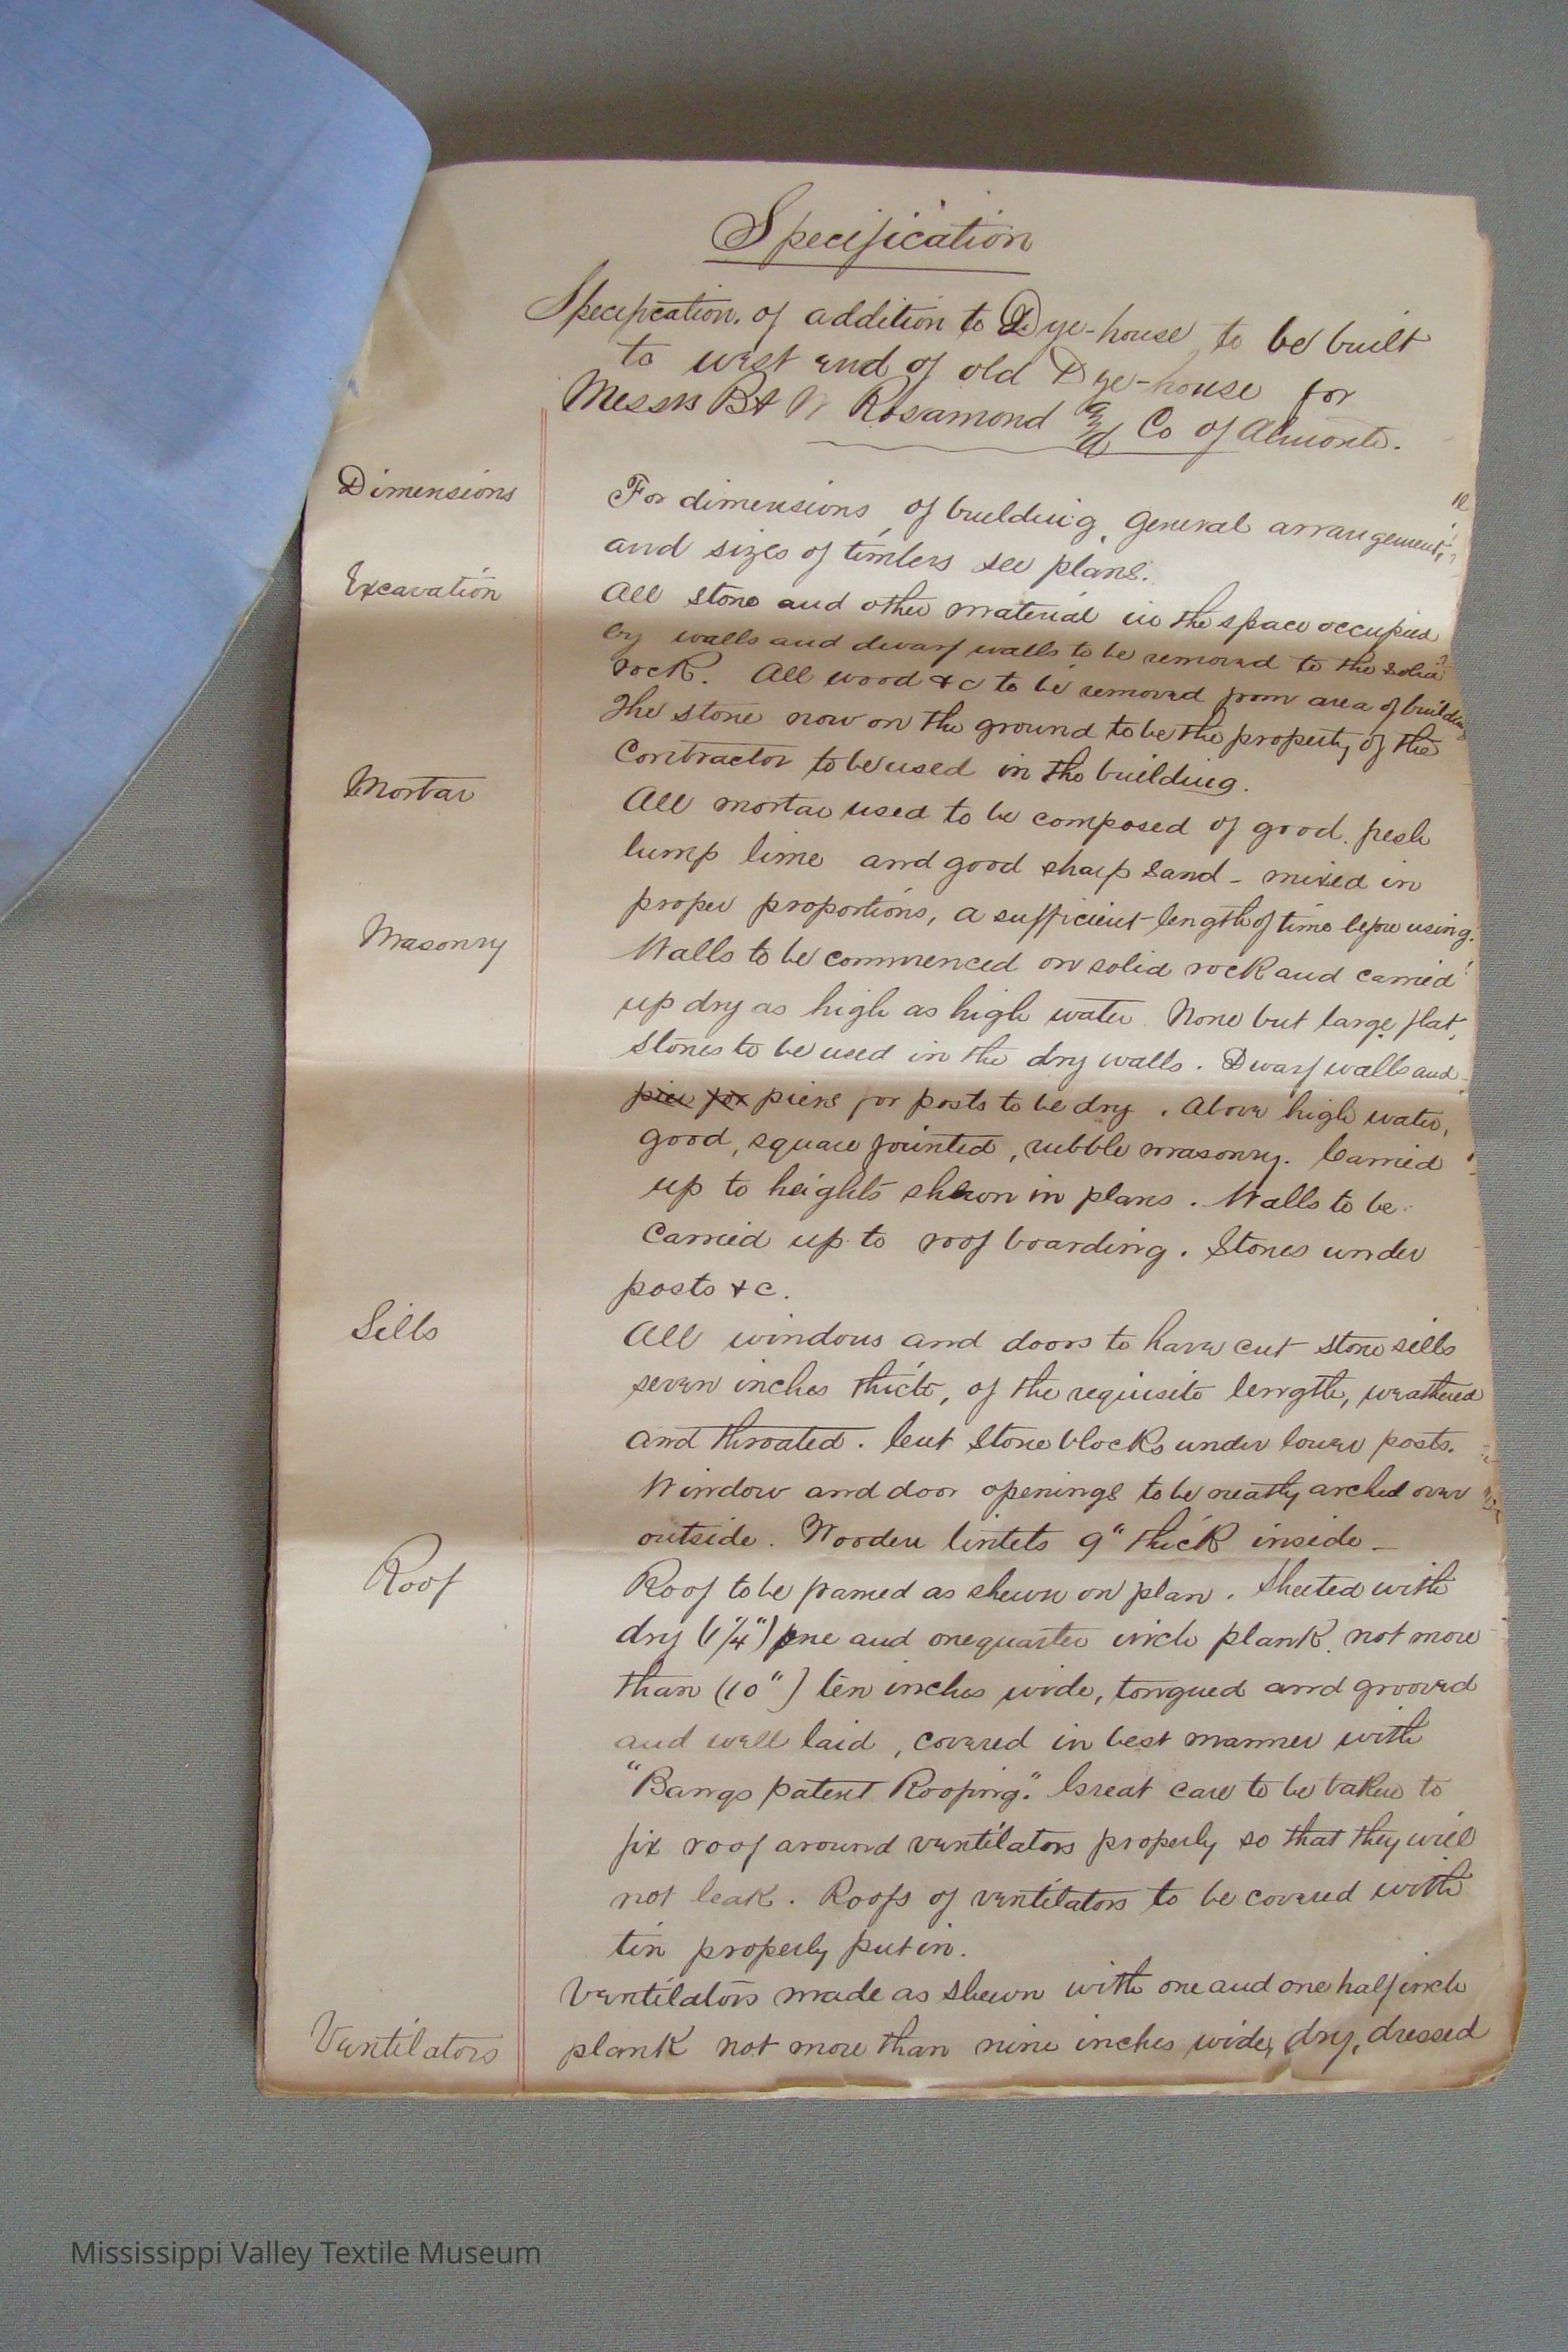 Specification
Specification. of addition to Dye-house to be built
to west end of old Dye-house for
Messrs B & W Rosamond and Co of Almonte.
Dimensions
For dimensions of building, General arrangement,
and sizes of timbers see plans.
Excavation
All stone and other material in the space occupied
by walls and dwarf walls to be removed to the solid
rock. All wood &c to be removed from area of building
The stone now on the ground to be the property of the
Contractor to be used in the building.
Mortar
All mortar used to be composed of good fresh
lump lime and good sharp sand - mixed in
proper proportions, a sufficient length of time before using.
Masonry
Walls to be commenced on solid rock and carried
up dry as high as high water. None but large flat
stones to be used in the dry walls. Dwarf walls and
pier for piers for posts to be dry. Above high water,
good, square jointed, rubble masonry. Carried
up to heights shewn in plans. Walls to be
carried up to roof boarding. Stones under
posts &c.
Sills
All windows and doors to have cut stone sills
seven inches thick, of the requisite length, weathered
and throated. Cut Stone blocks under lower posts.
Window and door openings to be neatly arched over
outside. Wooden lintels 9" thick inside -
Roof
Roof to be framed as shewn on plan. Sheeted with
dry (1 1/4") one and one quarter inch plank not more
than (10") ten inches wide, tongued and grooved
and well laid, covered in best manner with
"Bangs patent Roofing." Great care to be taken to
fix roof around ventilators properly so that they will
not leak. Roofs of ventilators to be covered with
tin properly put in.
Ventilators
Ventilators made as shewn with one and one half inch
plank not more than nine inches wide, dry, dressed
Mississippi Valley Textile Museum